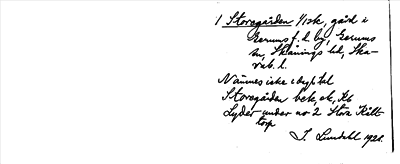 1 Storegården 1/1sk, gård i
Gerums f. d. by, Gerums
sn, Skånings hd, Ska-
rab. l.
Nämnes icke i byp.tal
Storegården bek, ek, Kb
Lyder under no 2 Stora Kätt-
torp
I. Lundahl 1928.